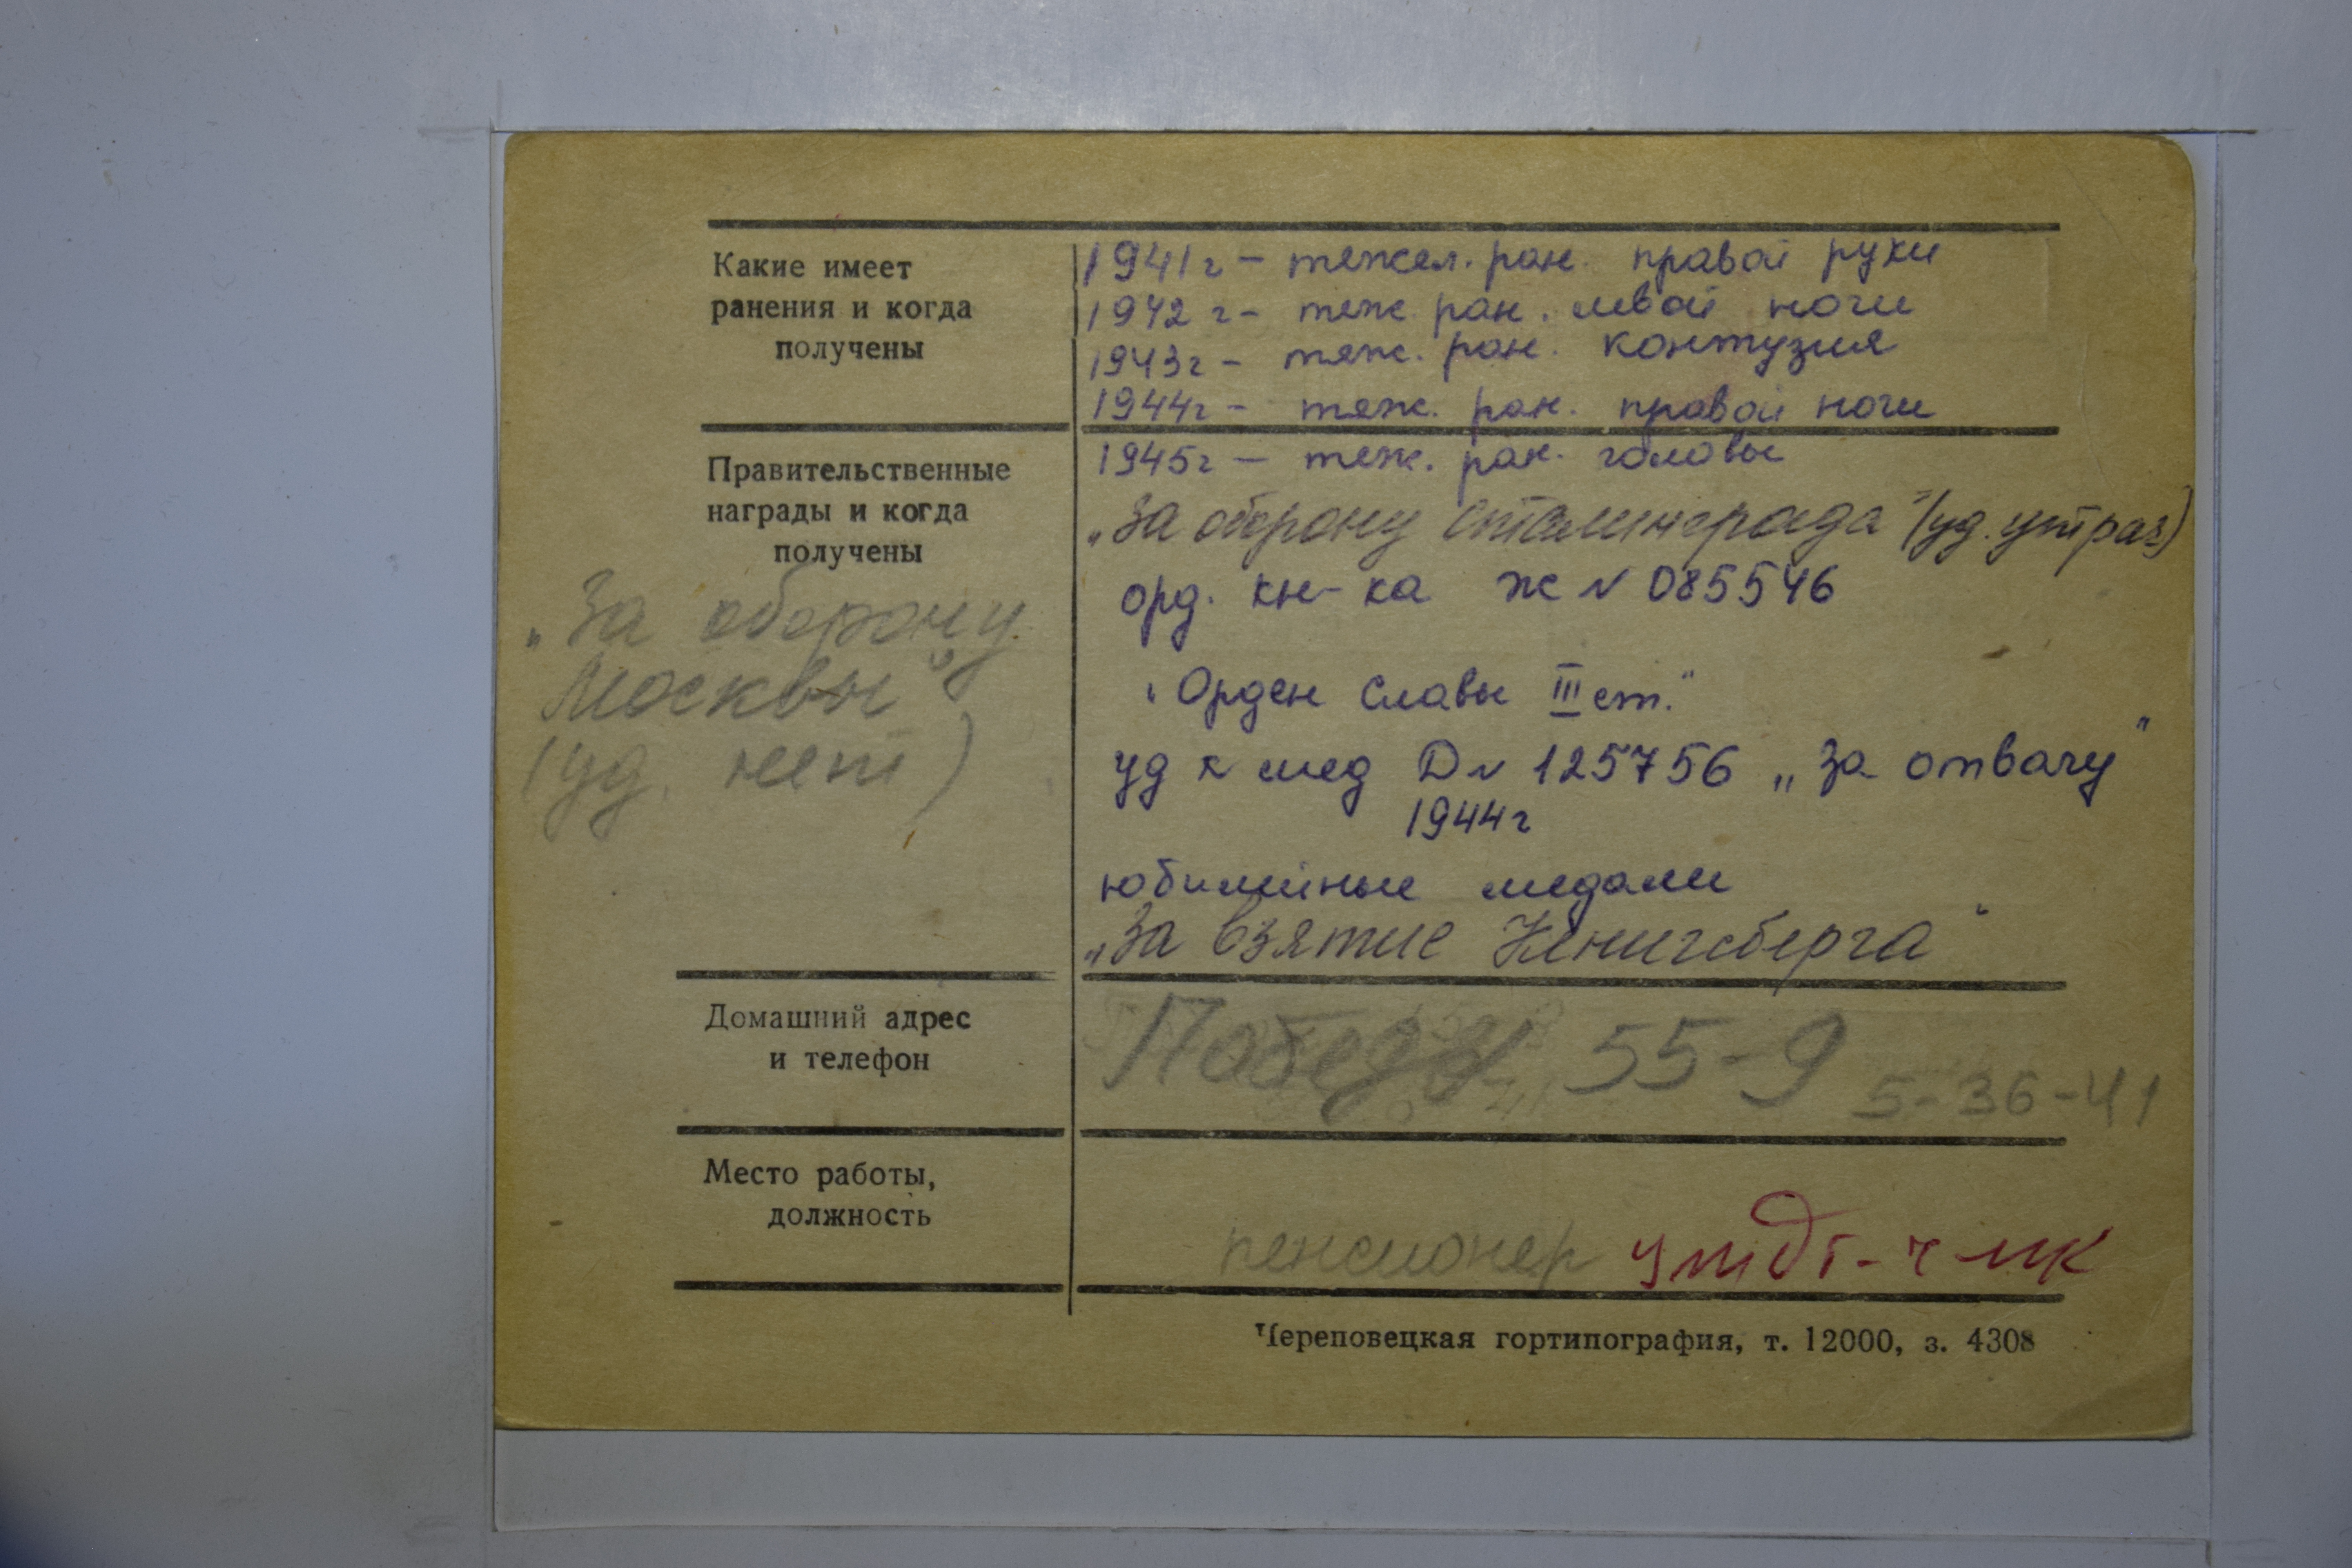 Какие имеет
ранения и когда
получены
1941г – тежел. ран. правой руки
1942 г – теж. ран. левой ноги
1943г – тяж. ран. контузия
1944г – тяж. ран. правой ноги
1945г – теж. ран. головы
Правительственные
награды и когда
получены
„За оборону
Москвы"
(уд. нет)
„За оборону Сталинграда" (уд. утрач)
орд. кн-ка Ж № 085546
„Орден Славы III ст."
уд к мед Д № 125756 „За отвагу"
1944г
юбилейные медали
„За взятие Кенигсберга"
Домашний адрес
и телефон
Победы 55-9
5-36-41
Место работы,
должность
пенсионер
Череповецкая гортипография, т. 12000, з. 4308